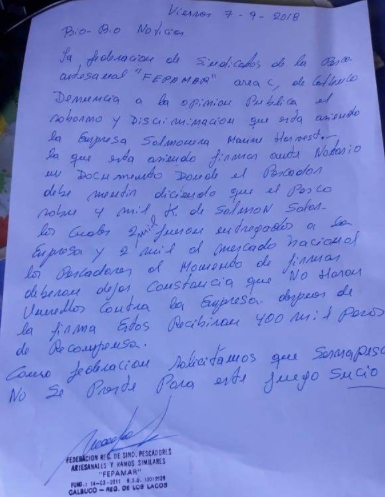 Viernes 7-9-2018
Bio-Bio Noticias
La federacion de Sindicatos de la Pesca
artesanal "FEPAMAR" area C, de Calbuco
Denuncia a la opinion Publica el
soborno y Discriminacion que esta aciendo
la Empresa Salmonera Marine Harvest
la que esta aciendo firmar ante Notario
un Documento Donde el Pescador
debe mentir diciendo que el Pesco
sobre 4 mil K de Salmon Salar
los Cuales 2 mil fueron entregados a la
Empresa y 2 mil al mercado Nacional
los Pescadores al Momento de firmar
deberan dejar Constancia que No Haran
contra la Empresa. despues de
la firma Estos Recibiran 400 mil Pesos
de Recompensa.
Como federacion solicitamos que Sernapesca
No Se Preste Para este juego Sucio
FEDERACION REG. DE SIND. PESCADORES
ARTESANALES Y RAMOS SIMILARES
"FEPAMAR"
FUND.: 14-03-2011 R.S.U.
CALBUCO - REG. DE LOS LAGOS